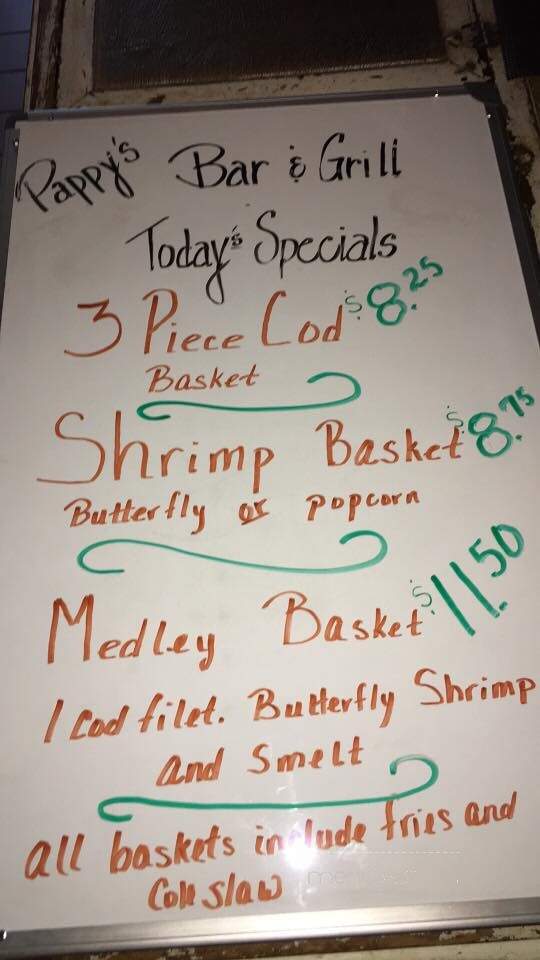 Pappy's Bar & Grill
Today's Specials
3 Piece Cod $8.25
Basket
Shrimp Basket $8.75
Butterfly or popcorn
Medley Basket $11.50
1 Cod filet. Butterfly Shrimp
and Smelt
all baskets include fries and
Cole slaw